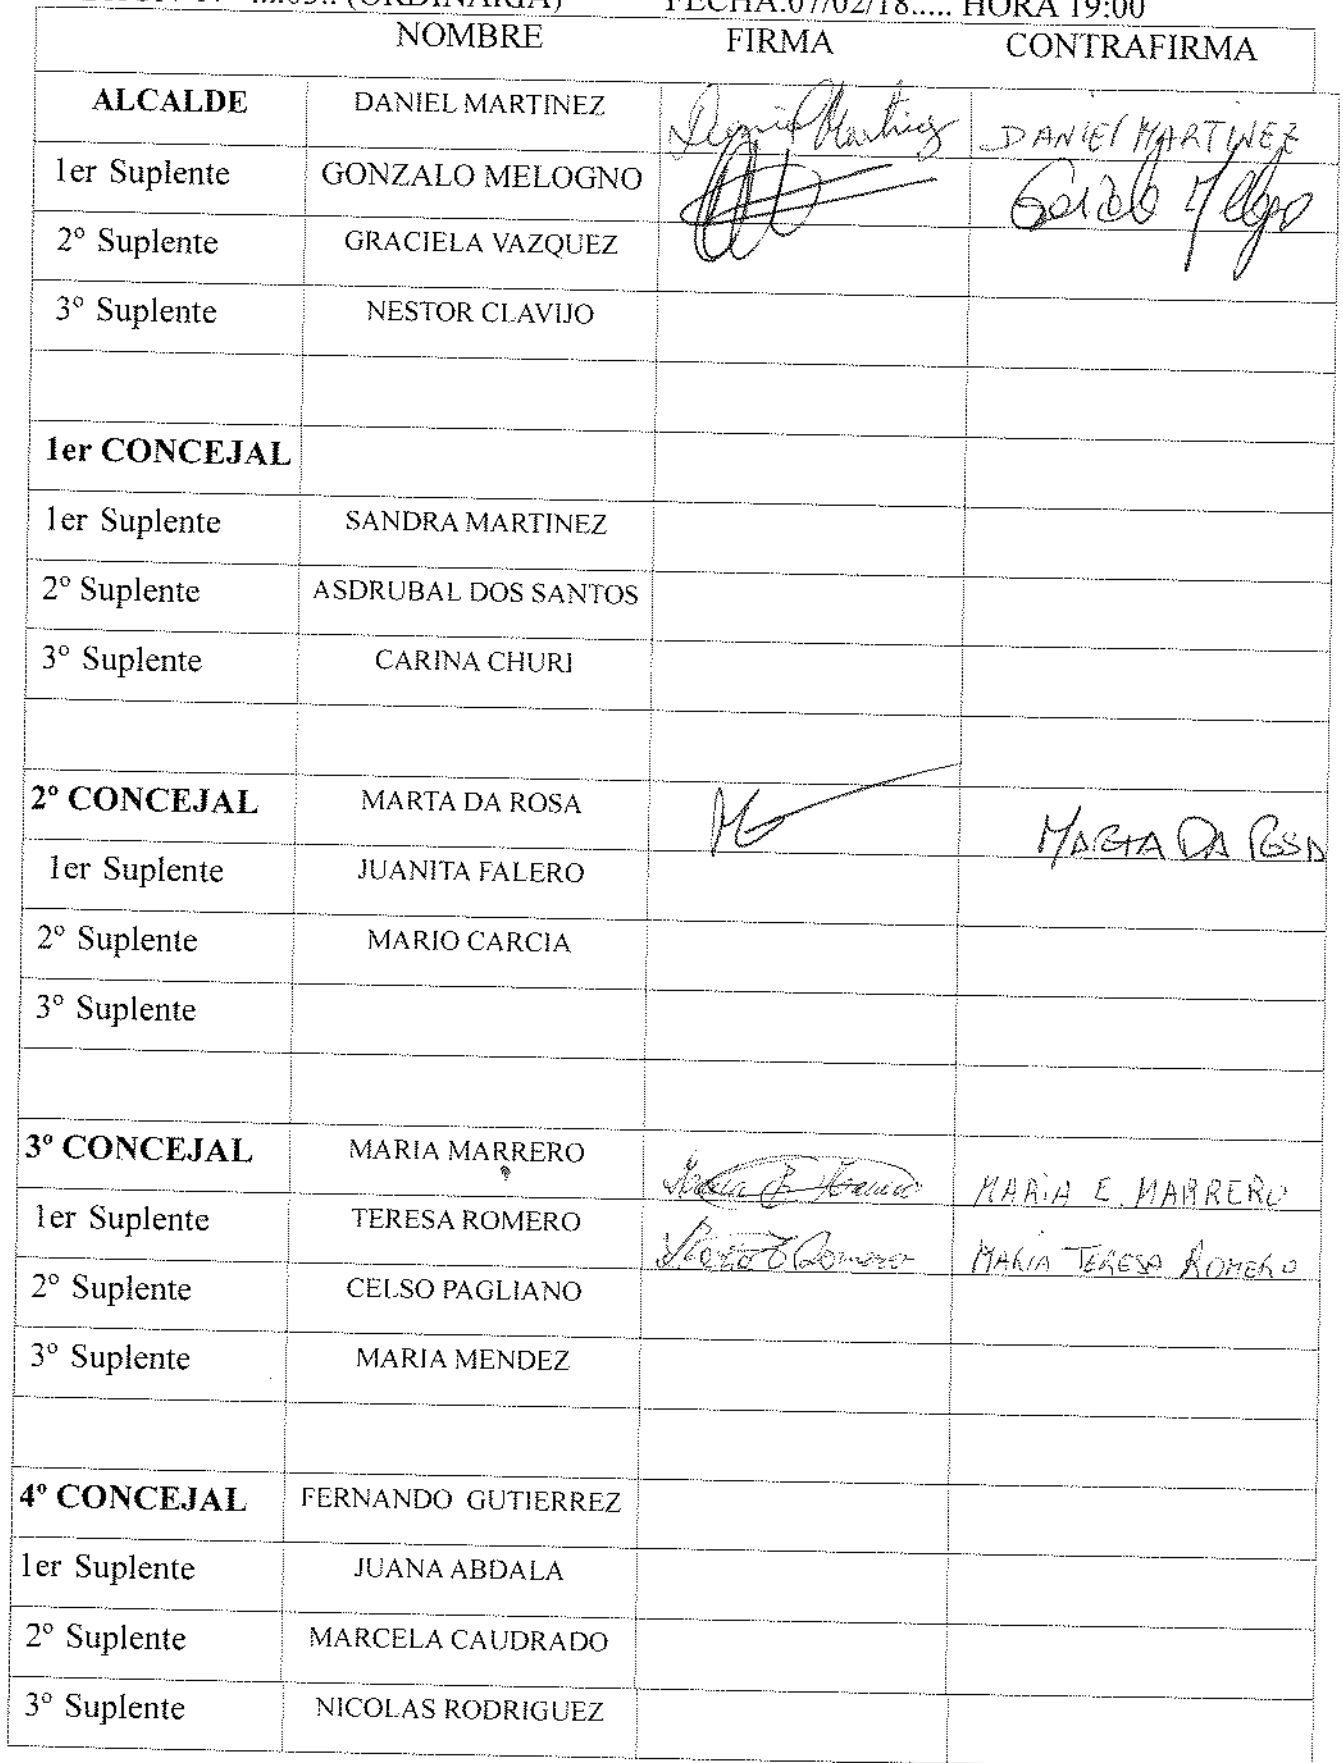 (ORDINARIA) FECHA:07/02/18..... HORA 19:00
NOMBRE FIRMA CONTRAFIRMA
ALCALDE DANIEL MARTINEZ Daniel Martinez DANIEL MARTINEZ
1er Suplente GONZALO MELOGNO
2º Suplente GRACIELA VAZQUEZ
3º Suplente NESTOR CLAVIJO
1er CONCEJAL
1er Suplente SANDRA MARTINEZ
2º Suplente ASDRUBAL DOS SANTOS
3º Suplente CARINA CHURI
2º CONCEJAL MARTA DA ROSA MARTA DA ROSA
1er Suplente JUANITA FALERO
2º Suplente MARIO CARCIA
3º Suplente
3º CONCEJAL MARIA MARRERO MARIA E. MARRERO
1er Suplente TERESA ROMERO MARIA TERESA ROMERO
2º Suplente CELSO PAGLIANO
3º Suplente MARIA MENDEZ
4º CONCEJAL FERNANDO GUTIERREZ
1er Suplente JUANA ABDALA
2º Suplente MARCELA CAUDRADO
3º Suplente NICOLAS RODRIGUEZ